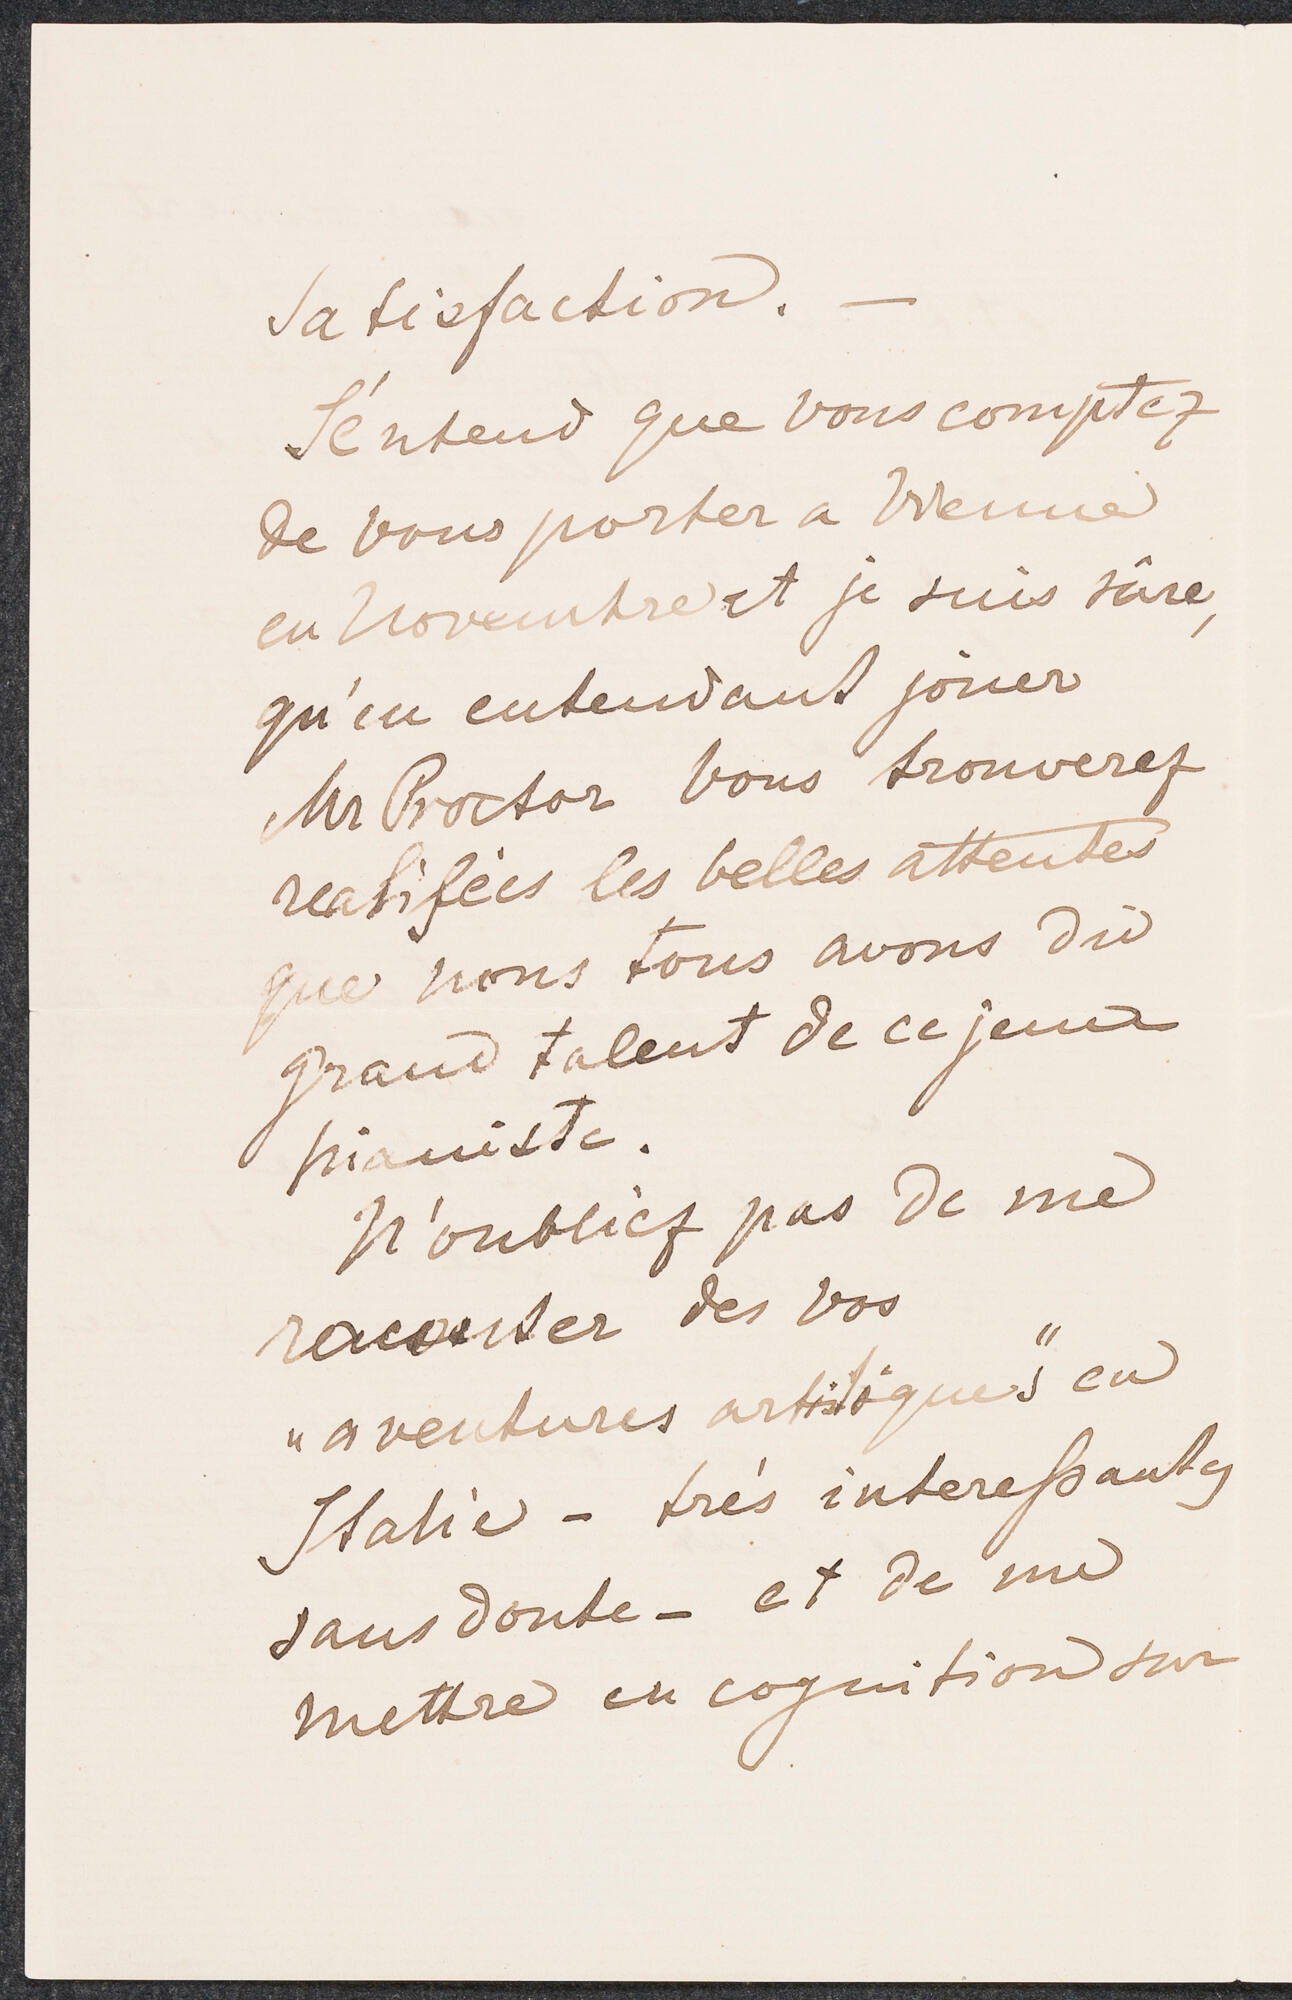 satisfaction. —
J'éntend que vous comptez
de vous porter a Vienne
en Novembre et je suis sûre,
qu'en entendant jouer
Mr Proctor vous trouverez
realisées les belles attentes
que nous tous avons du
grand talent de ce jeune
pianiste.
N'oubliez pas de me
raconter des vos
"aventures artistiques" en
Italie - très interessantes
sans doute - et de me
mettre en cognition sur